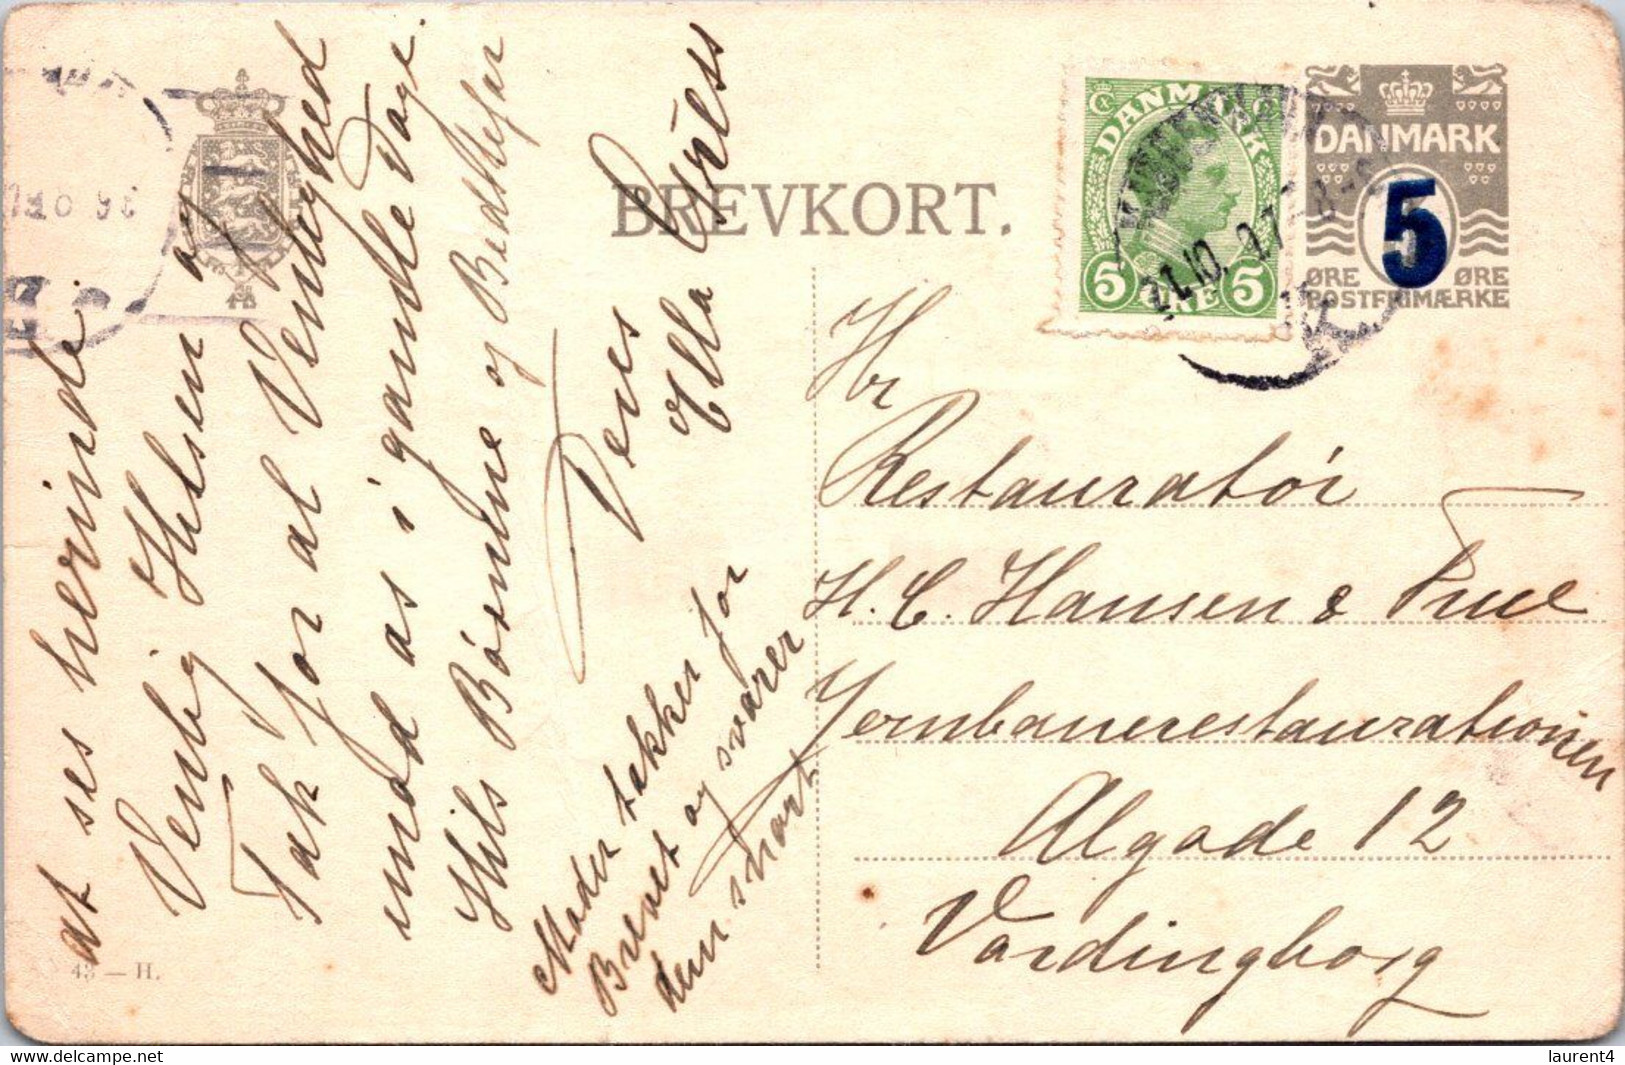 at ses herinde.
Venlig Hilsen og
Tak for al Venlighed
imod os i gamle Dage.
Hils Börnene og Bedstefar
Deres
Ella Gress
Moder takker for
Brevet og svarer
dem snart
BREVKORT.
DANMARK
5 ØRE 5
21.10.
DANMARK
5
ØRE ØRE
POSTFRIMÆRKE
Hr
Restauratör
H. C. Hansen & Frue
Jernbanerestaurationen
Algade 12
Vordingborg
43 — H.
laurent4